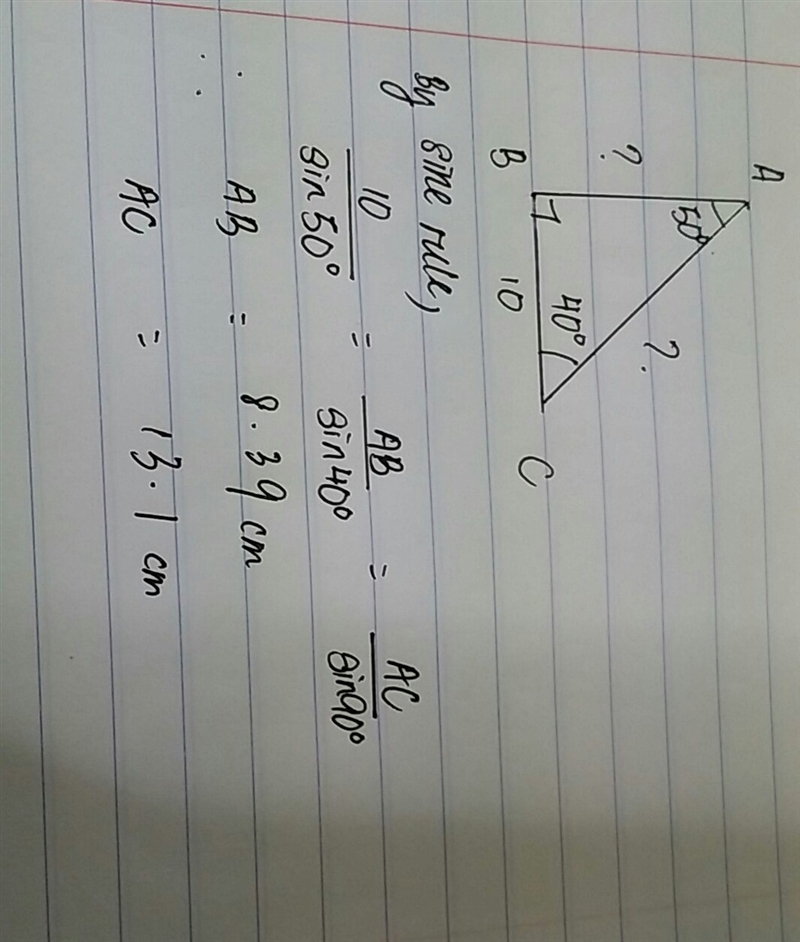 A
50°
?
?
40°
B
10
C
By sine rule,
10/sin50° = AB/sin40° = AC/sin90°
∴ AB = 8.39 cm
AC = 13.1 cm